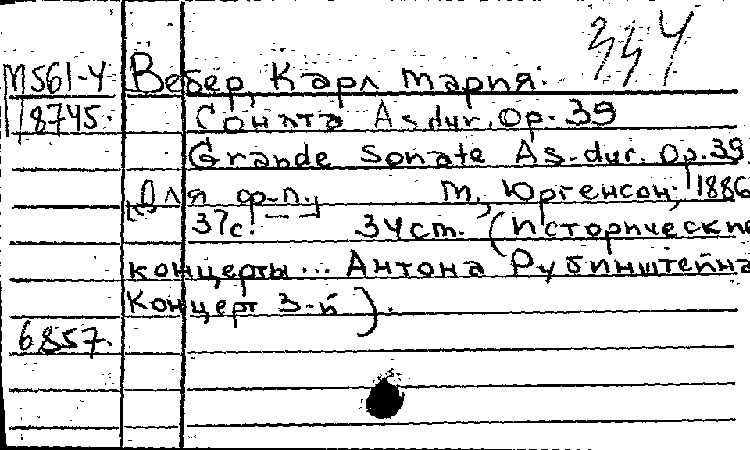 334
М561-4 Вебер, Карл Мария.
18745. Соната As dur. Op. 39
Grande Sonate As-dur. Op. 39
[Для ф-п.] М., Юргенсон, 1886
37с. 34 ст. (Исторические
концерты... Антона Рубинштейна
Концерт 3-й).
6857.